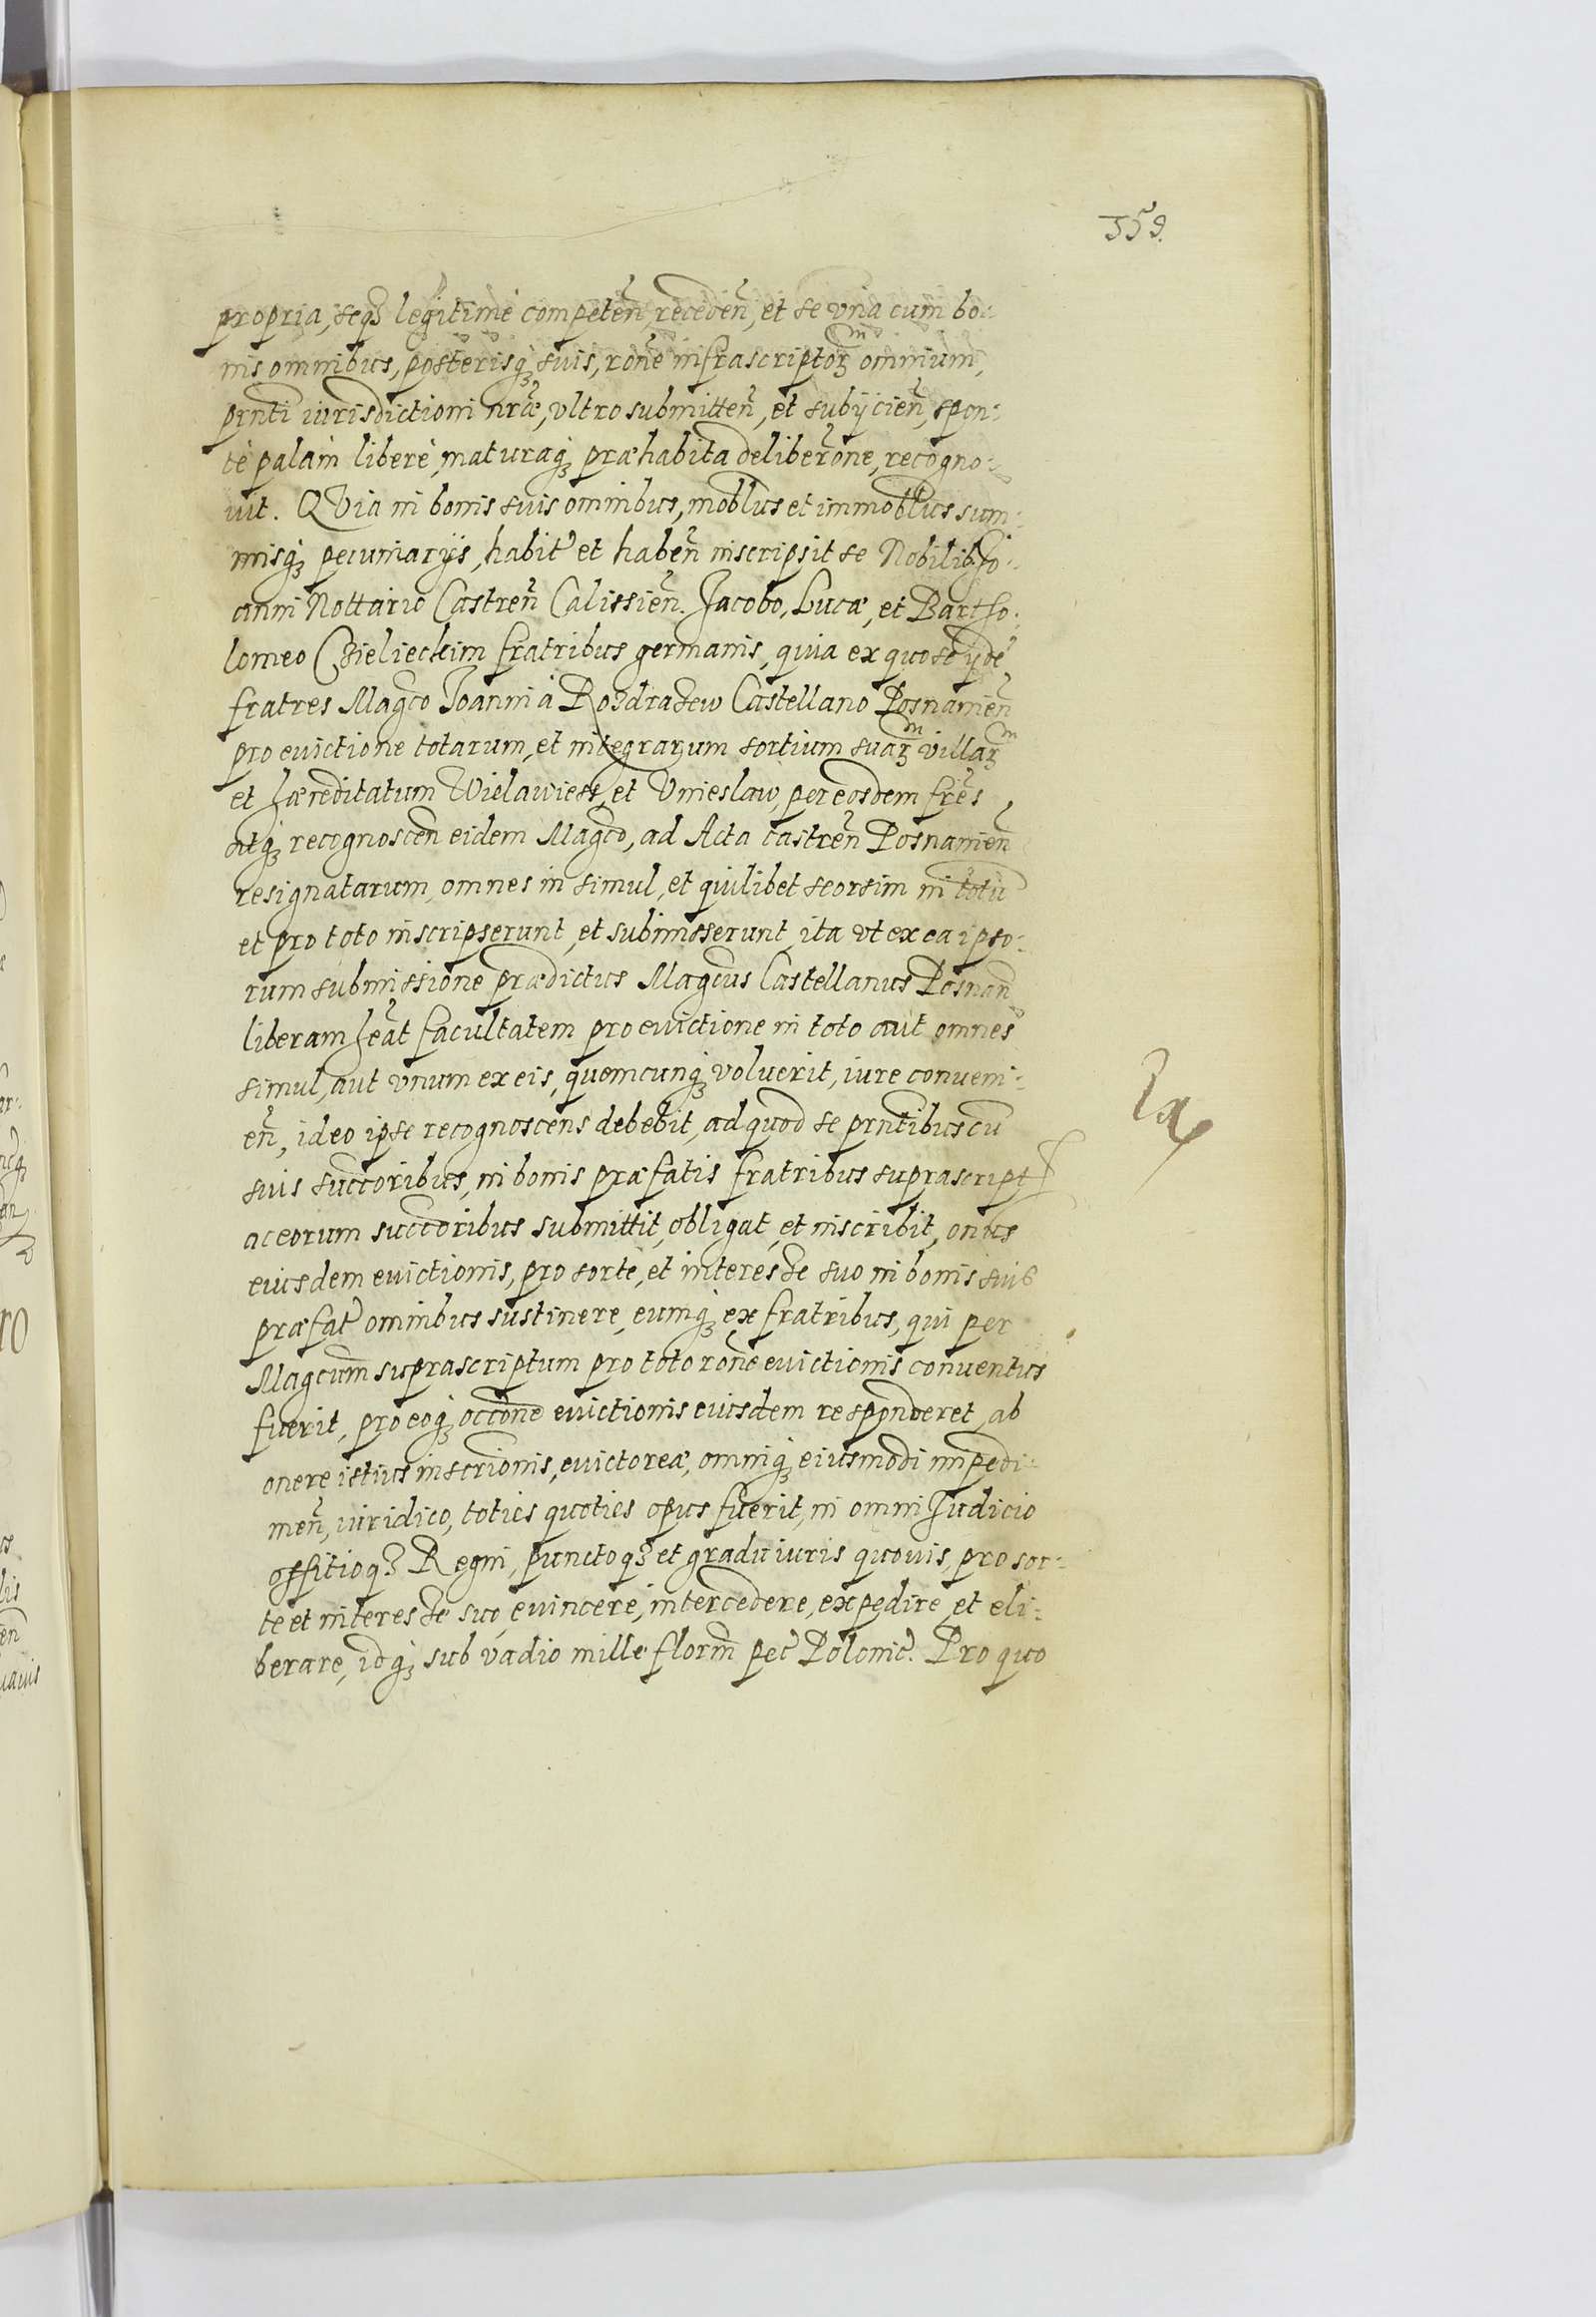 359.
propria, seq₃ legitimè competeñ, recedeñ, et se vna cum bo:
nis omnibus, posterisq₃ suis, rõne infrascriptoꝝ omnium,
prnti iurisdictioni nræ, vltro submitteñ, et subijcieñ, spon:
tè palàm liberè, maturaq₃ præhabita deliberõne, recogno:
uit. QVia in bonis suis omnibus, moblbus et immoblbus sum:
misq₃ pecuniarijs, habit' et habeñ inscripsit se Nobilib₃ Jo:
anni Nottario Castreñ Calissieñ. Jacobo, Lucæ, et Bartho:
lomeo Czielieckim fratribus germanis, quia ex quo se ijdẽ
fratres Magco Joanni à Rozdrazew Castellano Posnanieñ
pro evictione totarum, et integrarum sortium suaꝝ villaꝝ
et hæreditatum Wielawiess, et Vnieslaw, per eosdem frẽs
utq₃ recognosceñ eidem Magco, ad Acta castreñ Posnanieñ
resignatarum, omnes in simul, et quilibet seorsim in totũ
et pro toto inscripserunt, et submisserunt, ita vt ex ea ipso:
rum submissione prædictus Magcus Castellanus Posnañ
liberam heãt facultatem pro evictione in toto aut omnes
simul, aut vnum ex eis, quemcunq₃ voluerit, iure conueni:
eñ, ideo ipse recognoscens debebit, ad quod se prntibus cũ
suis succoribus, in bonis præfatis fratribus suprascript
ac eorum succoribus submittit, obligat, et inscribit, onus
eiusdem euictionis, pro sorte, et interesse suo in bonis suis
præfat' omnibus sustinere, eumq₃ ex fratribus, qui per
Magcum suprascriptum pro toto rõne euictionis conuentus
fuerit, pro eoq₃ occõne evictionis eiusdem responderet, ab
onere istius inscrionis, evictoreæ, omniq₃ eiusmodi impedi:
meñ, iuridico, toties quoties opus fuerit, in omni Judicio
offitioq₃ Regni, punctoq₃ et gradu iuris quouis, pro sor:
te et interesse suo, euincere, intercedere, expedire, et eli:
berare, idq₃ sub vadio mille florm pec' Polonic'. Pro quo